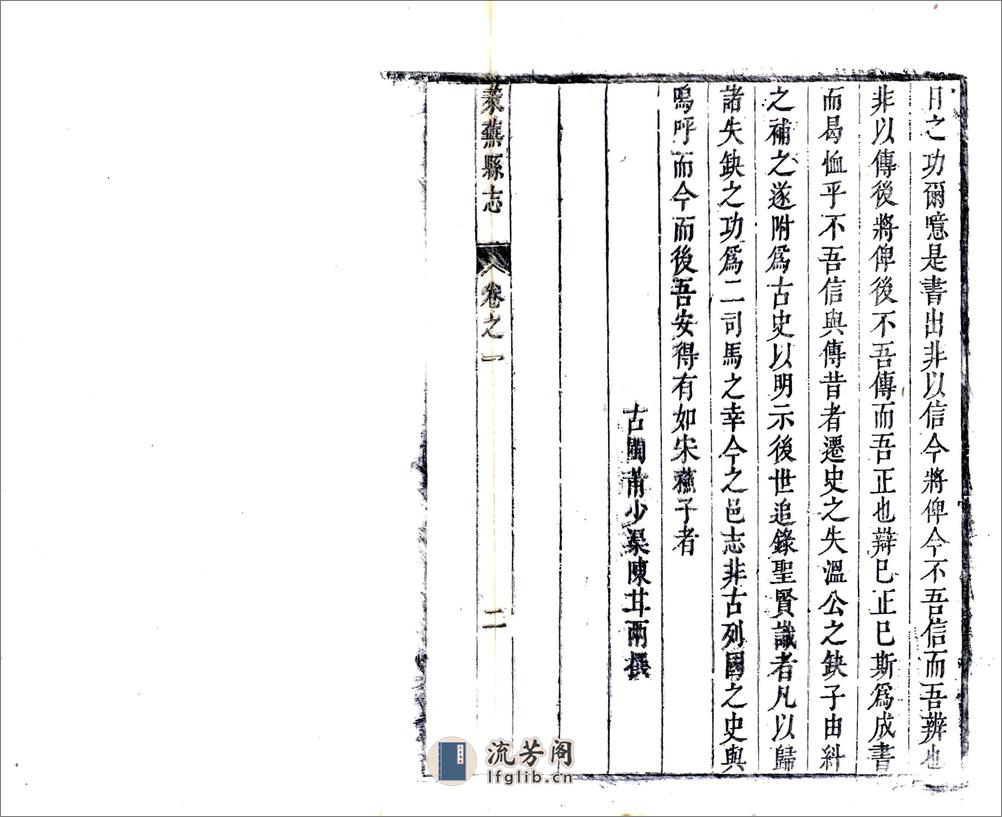 日之功爾噫是書出非以信今將俾今不吾信而吾辨也
非以傳後將俾後不吾傳而吾正也辯已正已斯爲成書
而曷恤乎不吾信與傳昔者遷史之失溫公之缺子由糾
之補之遂附爲古史以明示後世追錄聖賢議者凡以歸
諸失缺之功爲二司馬之幸今之邑志非古列國之史與
嗚呼而今而後吾安得有如宋蘓子者
古閩莆少渠陳甘雨撰
萊蕪縣志
卷之一
二
流芳阁
lfglib.cn